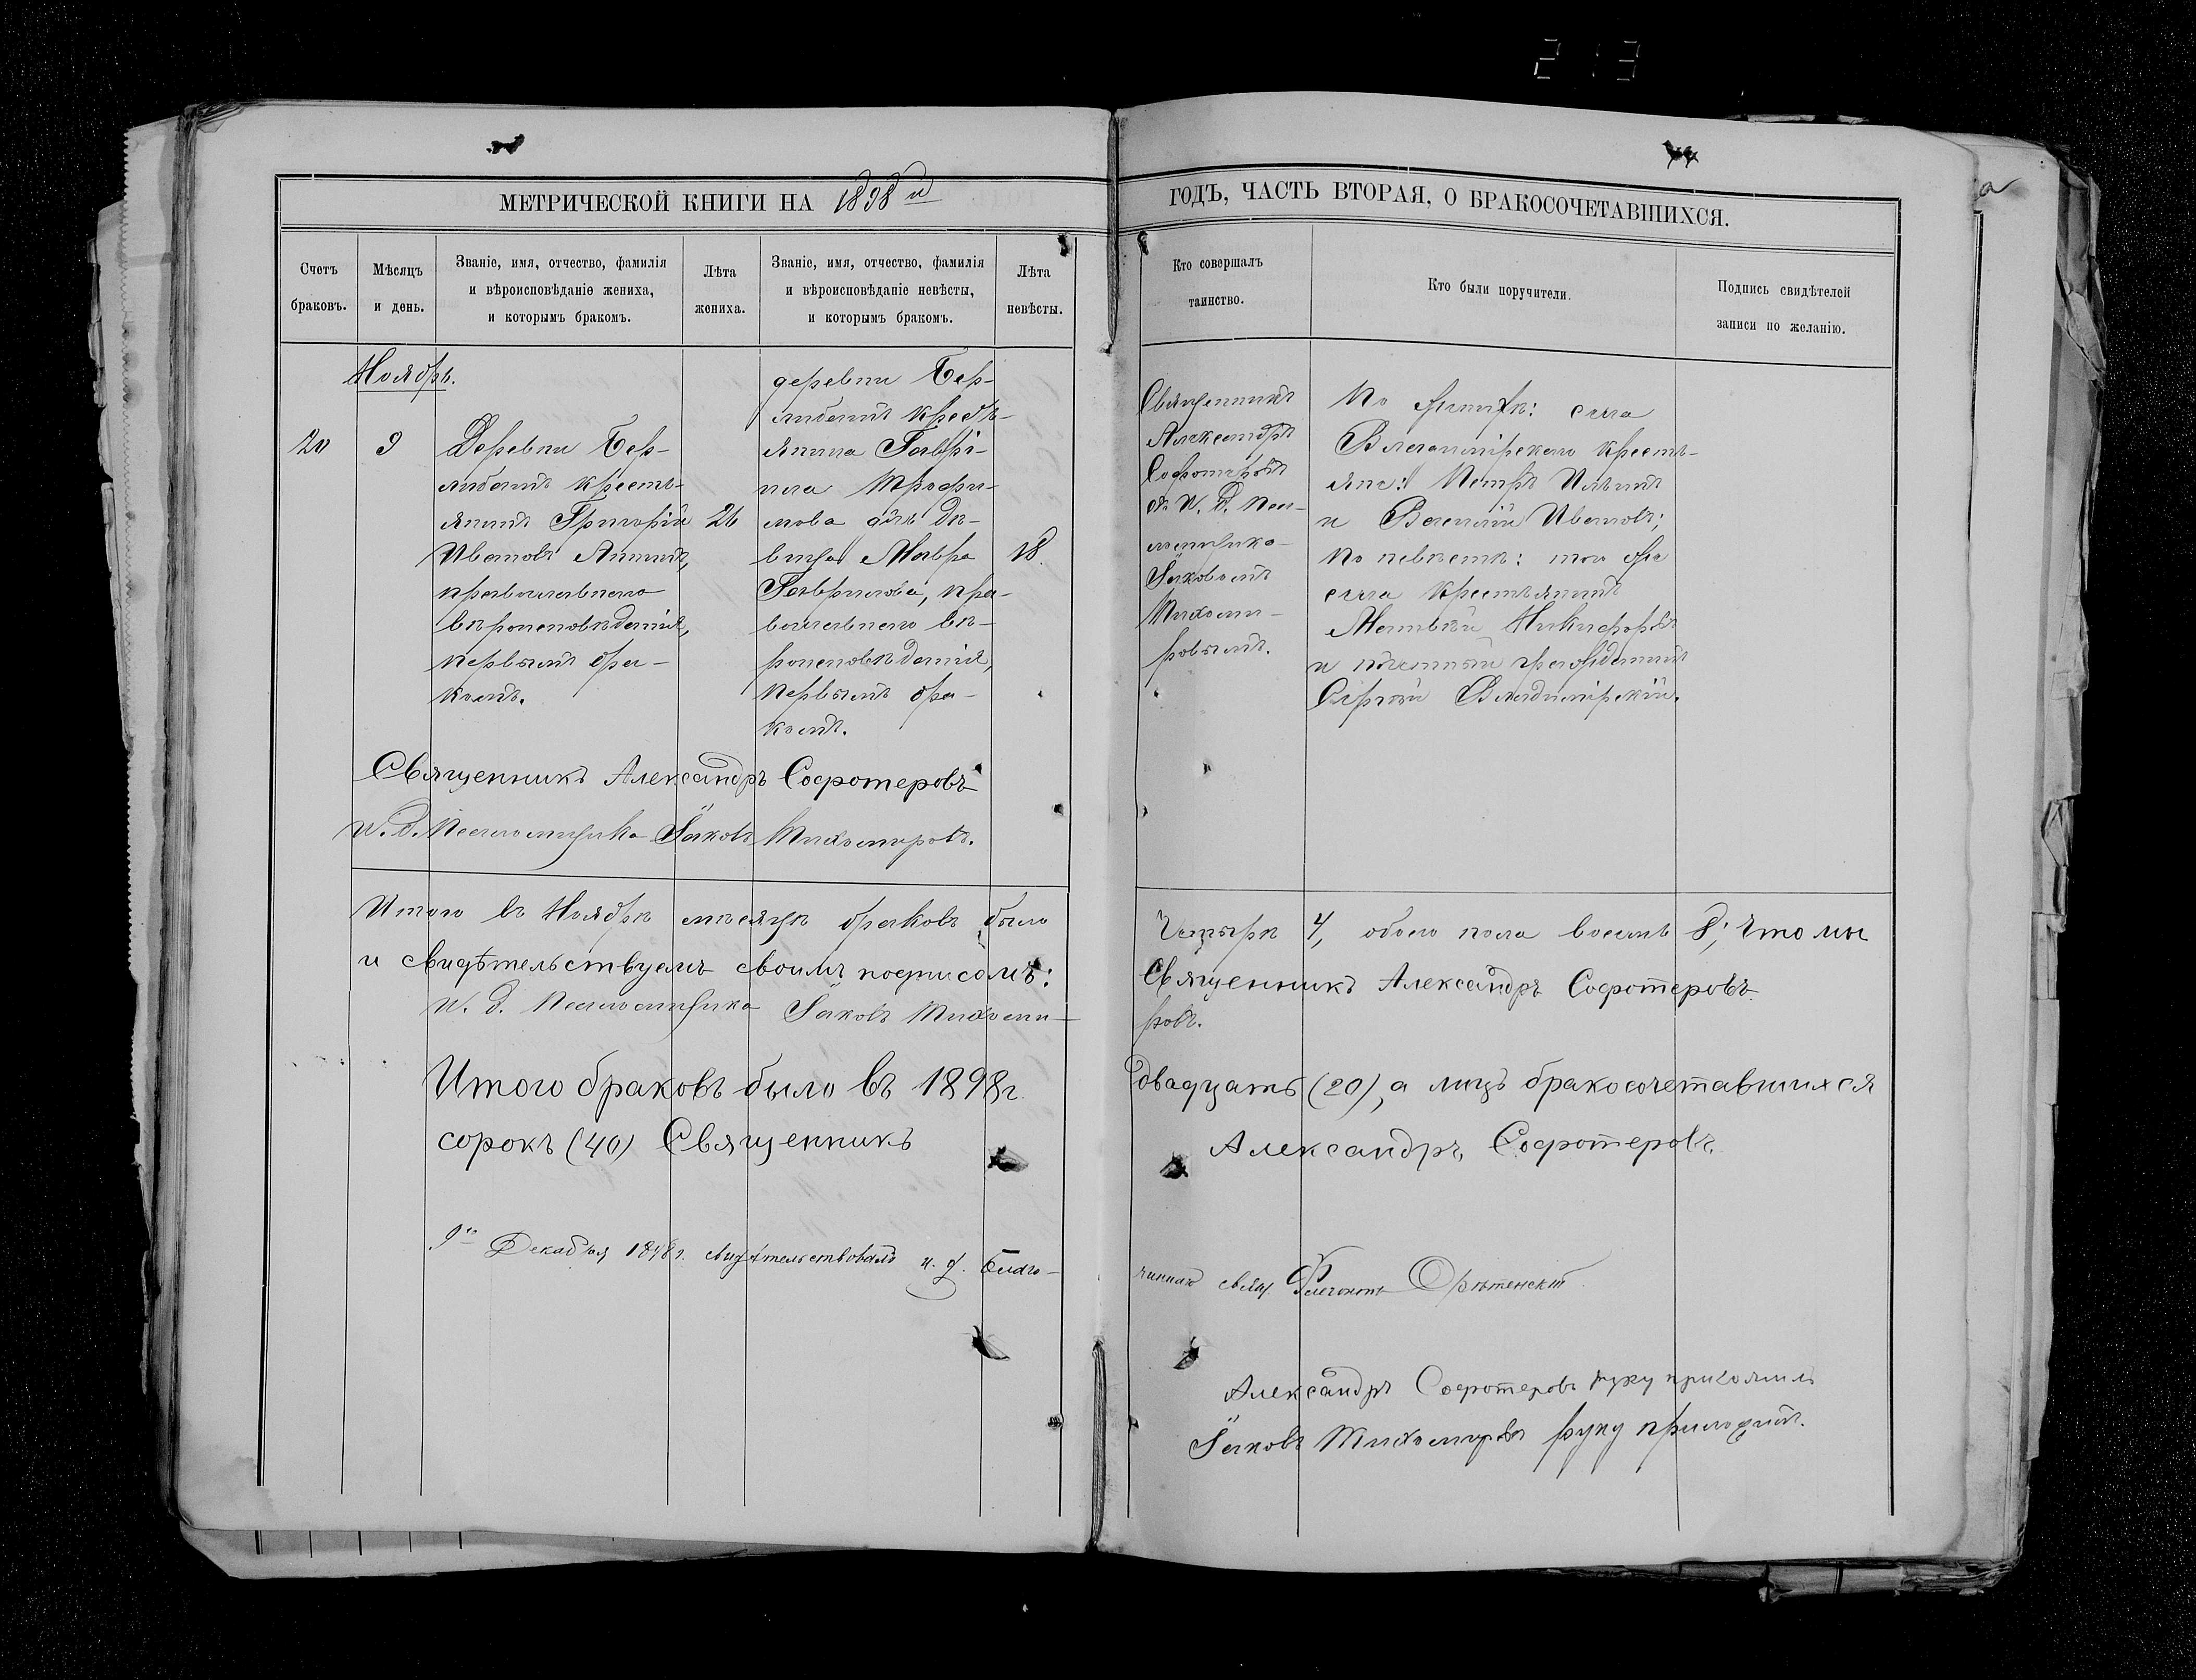 213
МЕТРИЧЕСКОЙ КНИГИ НА 1898 й
ГОДЪ, ЧАСТЬ ВТОРАЯ, О БРАКОСОЧЕТАВШИХСЯ.
Счетъ
браковъ.
Мѣсяцъ
и день.
Званіе, имя, отчество, фамилія
и вѣроисповѣданіе жениха,
и которымъ бракомъ.
Лѣта
жениха.
Званіе, имя, отчество, фамилія
и вѣроисповѣданіе невѣсты,
и которымъ бракомъ.
Лѣта
невѣсты.
Кто совершалъ
таинство.
Кто были поручители.
Подпись свидѣтелей
записи по желанію.
Ноябрь.
20
9
Деревни Бер-
крестъ-
янинъ Григорій
Ивановъ
православнаго
вѣроисповѣданія,
первымъ бра-
комъ.
26
деревни Бер-
крестъ-
янина Гаврі-
ила Трофи-
мова дочь дѣ-
вица Мавра
Гаврилова, пра-
вославнаго вѣ-
роисповѣданія,
первымъ бра-
комъ.
18.
Священникъ
Александръ
Софотеровъ
съ И. Д. Пса-
ломщика
Іаковомъ
Тихоми-
ровымъ.
По женихѣ: села
Владимірскаго крестъ-
яне: Петръ Ильинъ
и Василій Ивановъ;
по невѣстѣ: того же
села крестьянинъ
Матвѣй Никифоровъ
и почетный гражданинъ
Сергѣй Владимірскій.
Священникъ Александръ Софотеровъ
И. д. Псаломщика Іаковъ Тихомировъ.
Итого въ Ноябрѣ мѣсяцѣ браковъ было
Четыре 4, обоего пола восемь 8; что мы
и свидѣтельствуемъ своимъ подписомъ:
Священникъ Александръ Софотеровъ.
И. д. Псаломщика Іаковъ Тихоми-
ровъ.
Итого браковъ было въ 1898 г.
двадцать (20), а лицъ бракосочетавшихся
сорокъ (40) Священникъ
Александръ Софотеровъ.
9го Декабря 1898 г. свидѣтельствовалъ и. д. Благо-
чиннаго свящ. Флегонтъ Срѣтенскій
Александръ Софотеровъ руку приложилъ
Іаковъ Тихомировъ руку приложилъ.